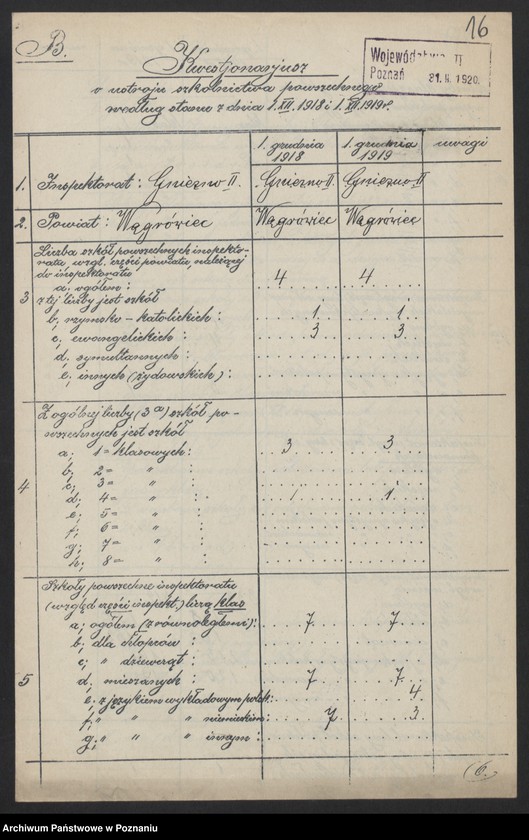 16
B.
Województwo
Poznań 31. II. 1920.
Kwestjonarjusz
o ustroju szkolnictwa powszechnego
według stanu z dnia 1. XII. 1918 i 1. XII. 1919 r.
1. grudnia 1918 1. grudnia 1919 uwagi
1. Inspektorat: Gniezno II. Gniezno II. Gniezno II
2. Powiat: Wągrówiec Wągrówiec Wągrówiec
3 Liczba szkół powszechnych inspekto-
ratu wzgl. części powiatu, należącej
do inspektoratu
a; ogółem: 4 4
z tej liczby jest szkół
b; rzymsko-katolickich: 1 1
c; ewangelickich: 3 3
d; symultannych:
e; innych (żydowskich):
4 Z ogólnej liczby (3 a) szkół po-
wszechnych jest szkół
a; 1=klasowych: 3 3
b; 2= " :
c; 3= " :
d; 4= " : 1 1
e; 5= " :
f; 6= " :
g; 7= " :
h; 8= " :
5 Szkoły powszechne inspektoratu
(względ. części inspekt.) liczą klas
a; ogółem (z równoległemi): 7 7
b; dla chłopców:
c; " dziewcząt:
d; mieszanych: 7 7
e; z językiem wykładowym polsk: 4
f; " " " niemieckim: 7 3
g; " " " innym:
(6.
Archiwum Państwowe w Poznaniu